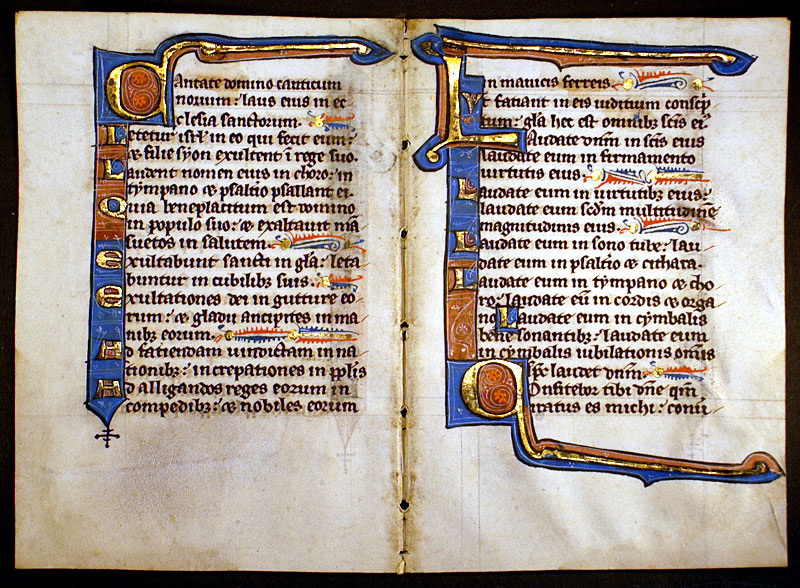 Cantate domino canticum
novum: laus eius in ec
clesia sanctorum.
Letetur isrl' in eo qui fecit eum:
⁊ filie syon exultent ī rege suo.
Laudent nomen eius in choro: in
tympano ⁊ psaltio psallant ei.
Quia beneplacitum est domino
in populo suo: ⁊ exaltavit mā
suetos in salutem.
Exultabunt sancti in gl'a: leta
buntur in cubilibus suis.
Exultationes dei in gutture eo
rum: ⁊ gladii ancipites in ma
nibꝫ eorum.
Ad faciendam vindictam in na
tionibꝫ: increpationes in pplis
Ad alligandos reges eorum in
compedibꝫ: ⁊ nobiles eorum
in manicis ferreis.
Vt faciant in eis iuditium conscp
tum: gl'a hec est omnibꝫ scīs ei'
Laudate dnm in scīs eius
laudate eum in firmamento
virtutis eius.
Laudate eum in virtutibꝫ eius:
laudate eum scdm multitudinē
magnitudinis eius.
Laudate eum in sono tube: lau
date eum in psaltio ⁊ cithara.
Laudate eum in tympano ⁊ cho
ro: laudate eū in cordis ⁊ orga
no. Laudate eum in cymbalis
bene sonantibꝫ: laudate eum
in cymbalis iubilationis omīs
spc laudet dnm.
Confitebor tibi dnē qm
iratus es michi: conū